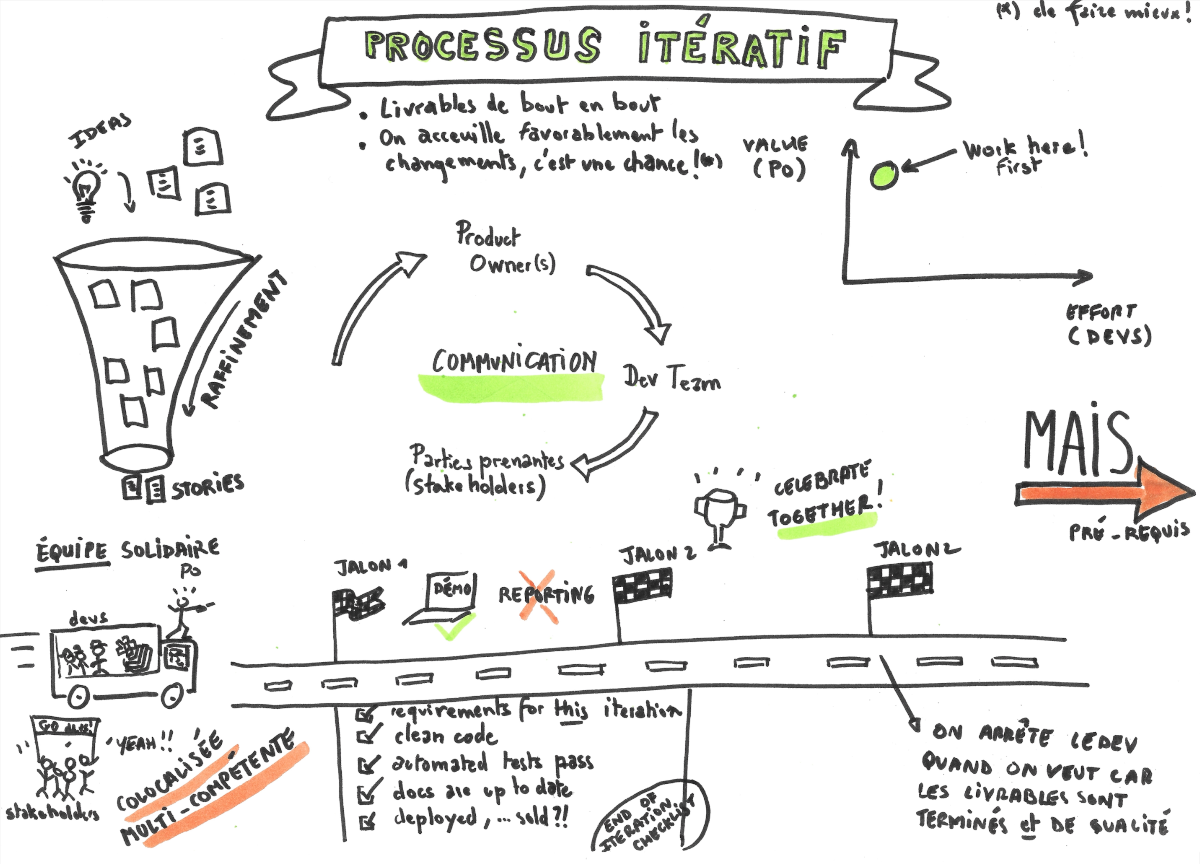 (*) de faire mieux!
PROCESSUS ITÉRATIF
• Livrables de bout en bout
• On acceuille favorablement les
changements, c'est une chance!(*)
IDEAS
VALUE
(PO)
Work here!
First
EFFORT
(DEVS)
RAFFINEMENT
STORIES
Product
Owner(s)
COMMUNICATION
Dev Team
Parties prenantes
(stakeholders)
MAIS
PRÉ-REQUIS
CELEBRATE
TOGETHER!
ÉQUIPE SOLIDAIRE
PO
devs
JALON 1
DÉMO
REPORTING
JALON 2
JALON 2
GO devs!
YEAH!!
stakeholders
COLOCALISÉE
MULTI-COMPÉTENTE
requirements for this iteration
clean code
automated tests pass
docs are up to date
deployed, ... sold?!
END OF
ITERATION
CHECKLIST
ON ARRÊTE LE DEV
QUAND ON VEUT CAR
LES LIVRABLES SONT
TERMINÉS et DE QUALITÉ